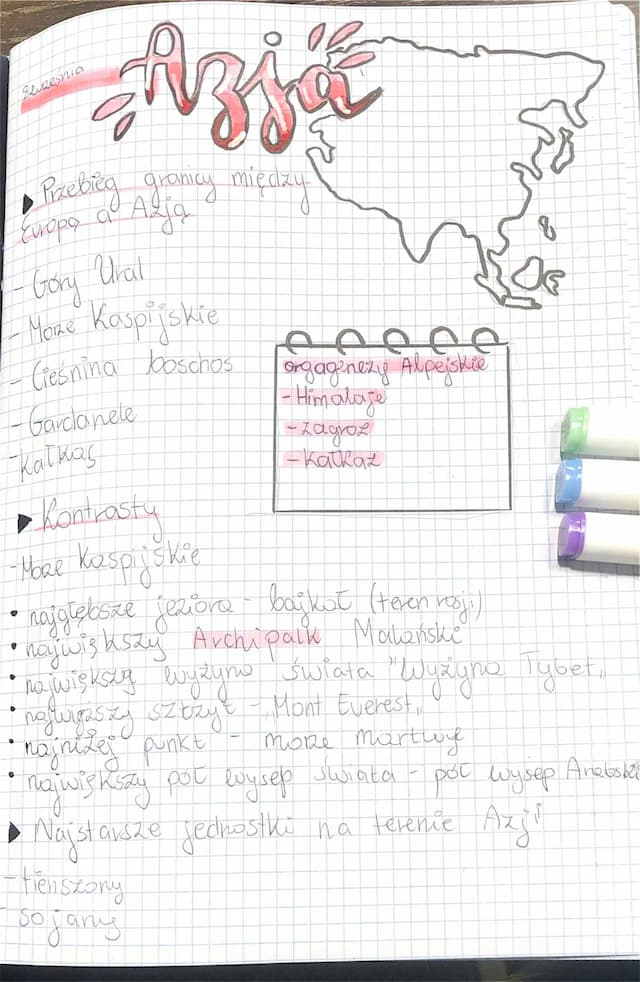 Września
Azja
Przebieg granicy między
Europą a Azją
- Góry Ural
- Morze Kaspijskie
- Cieśnina boschos
- Gardanele
- Kałkas
orgaginezy Alpejskie
- Himalaje
- zagroz
- Kałkaz
Kontrasty
- Morze Kaspijskie
• najgłębsze jezioro - bajkoł (teren rosji)
• największy Archipalk Malański
• największą wyżyna świata "Wyżyna Tybet„
• najwyższy sztzyt - „Mont Everest„
• najniżej punkt - morze martwe
• największy pół wysep świata - pół wysep Arabski
Najstarsze jednostki na terenie Azji
- tienszony
- sojany